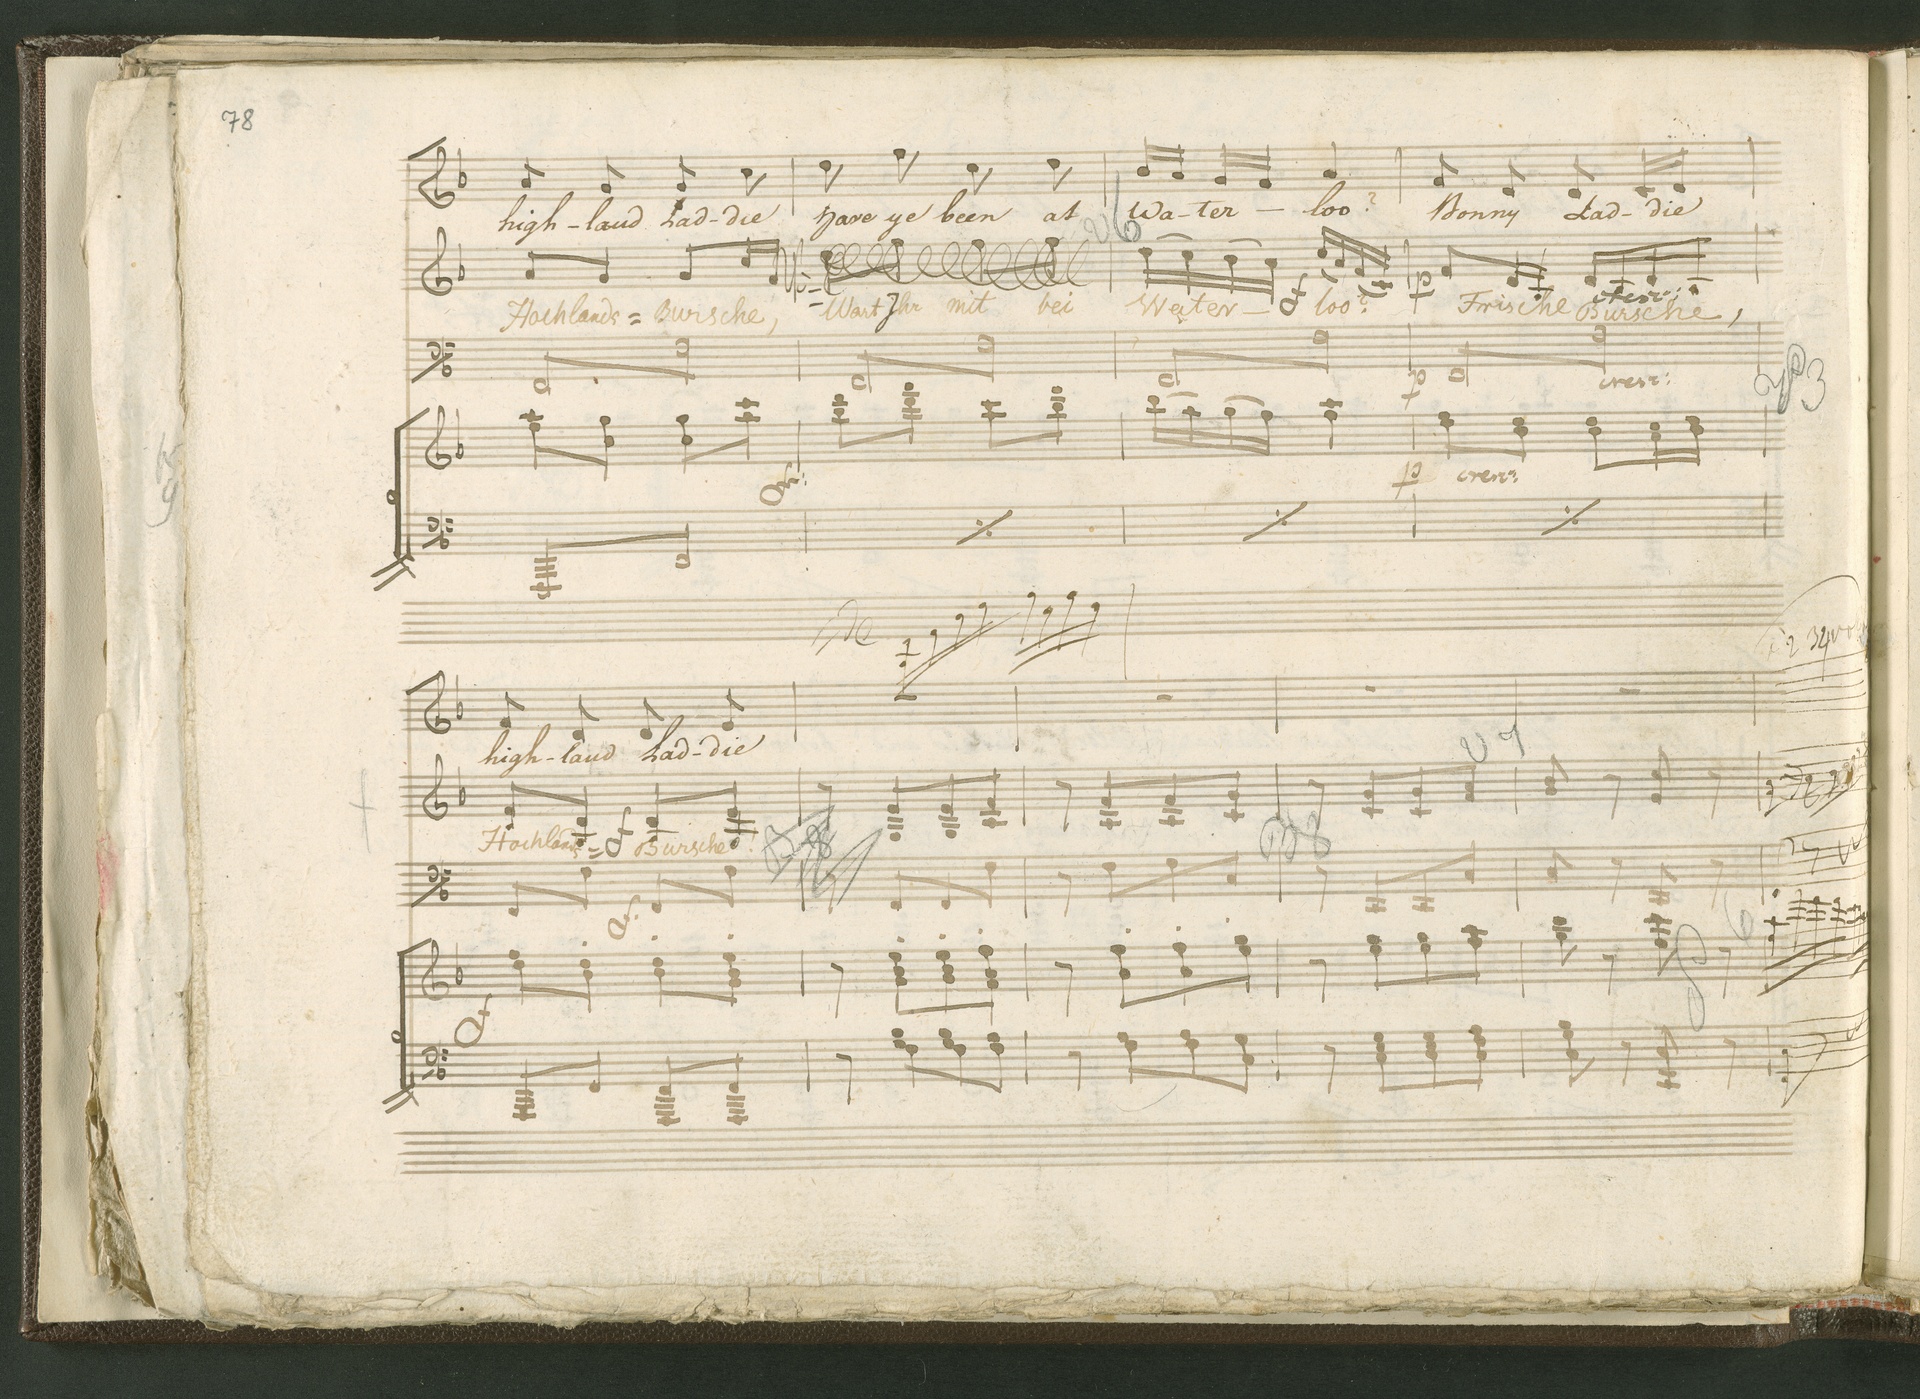 78
high-land Lad-die have ye been at Wa-ter - loo? Bonny Lad-die
V 6
Hochlands = Bursche, Wart Ihr mit bei Water - loo? Frische Bursche,
p cresc:
p cresc:
p cresc:
high-land Lad-die
Hochlands = Bursche!